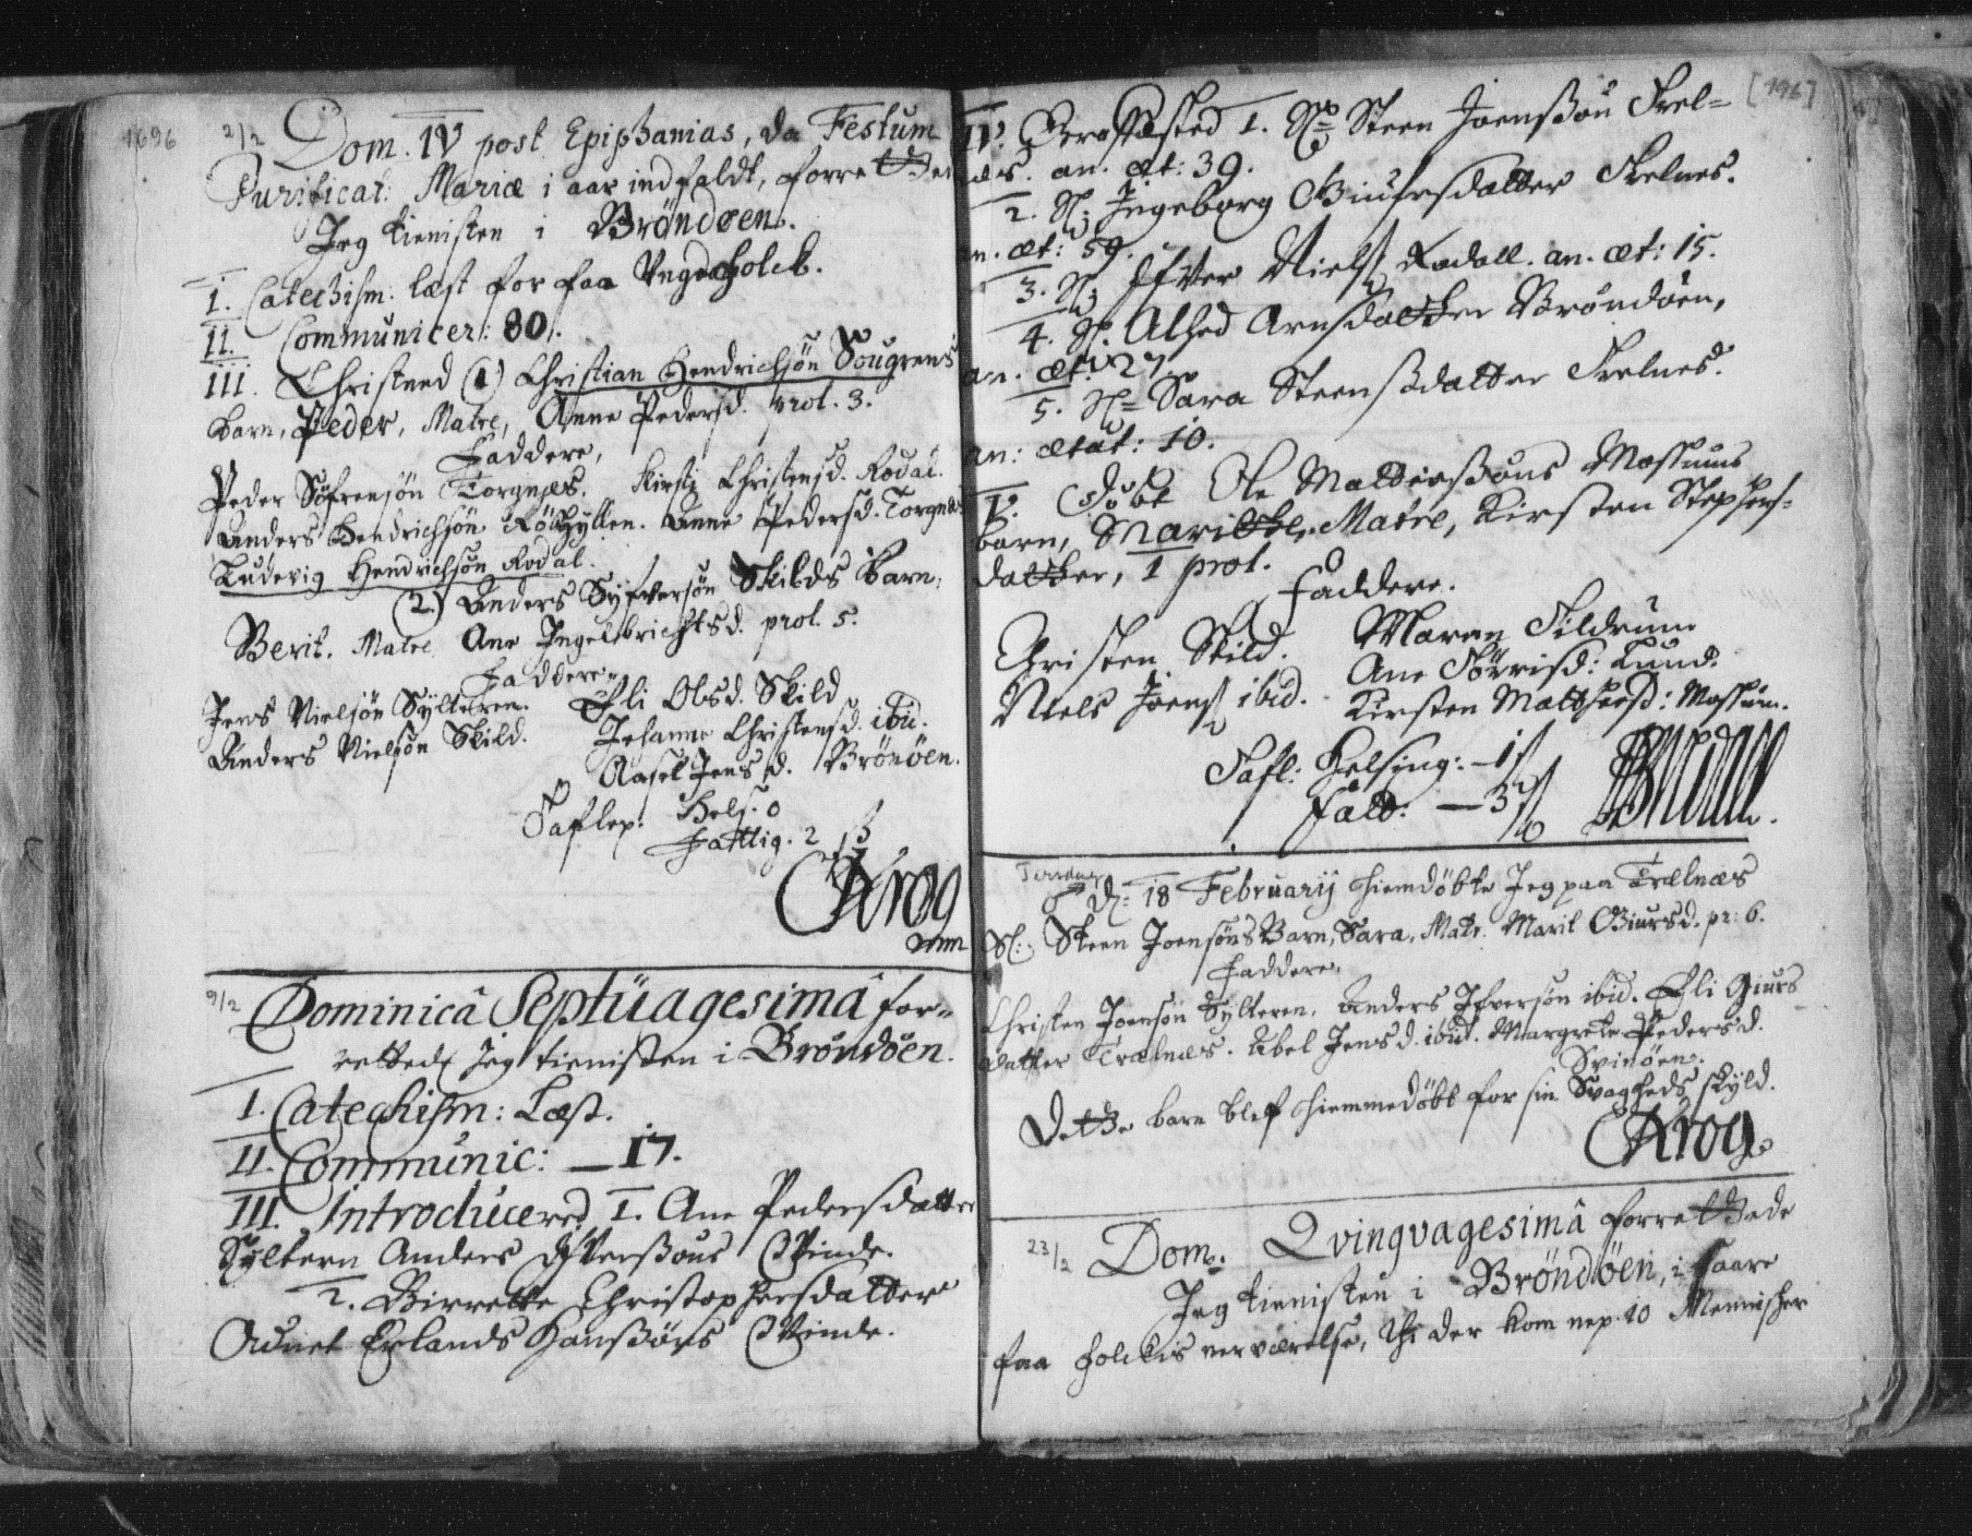 1696
2/2 Dom. IV post Epiphanias, da Festum
Purificat: Mariæ i aar indfaldt, forrettede
Jeg tienisten i Brøndøen.
I. Catechism: læst for faa Ungdfolck.
II. Communicer: 80.
III. Christned (1) Christian Hendrichsøn Sougrens
barn, Peder, Matre, Anne Pedersd. prol. 3.
Faddere,
Peder Søfrensøn Torgnæs. Kirsti Christensd. Rodal.
Anders Hendrichsøn Røkhyllen. Anne Pedersd. Torgnæs
Ludevig Hendrichsøn Rodal.
(2) Anders Syfversøn Skilds barn,
Berit. Matre Ane Ingelbrichtsd. prol. 5.
Faddere,
Jens Nielsøn Sylteren. Eli Olsd. Skild
Anders Nielsøn Skild. Johanna Christensd. ibid.
Aasel Jensd. Brønöen.
Taflep. Hels. 0
Fattig. 2 ß
CKrog
mm
9/2 Dominicâ Septüagesimâ for-
rettede Jeg tienisten i Brøndöen.
I. Catechism: Læst.
II. Communic: — 17.
III. Introducered 1. Ane Pedersdatter
Syltern Anders Ifverssøns Qvinde.
2. Birrette Christophersdatter
Erlands Hanssøns Qvinde.
[196]
IV. Berasted 1. Sl= Steen Joenssøn Trel=
næs. an. æt: 39.
2. Sl: Ingeborg Giursdatter Trelnes.
an. æt: 59.
3. Sl: Ifver Niels Rodall. an. æt: 15.
4. Sl. Alhed Arnsdatter Brøndöen,
an. æt: 27.
5. Sl= Sara Steensdatter Trelnes.
an: ætat: 10.
V. Döbt Ole Mattissøns Mossums
barn, Maritte, Matre, Kirsten Stephens-
datter, 1 prol.
Faddere.
Christen Skild. Maren Tildrum
Niels Joens ibid. Ane Torrisd: Lund.
Kirsten Matthisd: Mossum.
Tafl: Helsing: — 1 ß
Fatt: — 3 ß
Tirsdag
♂ D: 18 Februarij hiemdøbte Jeg paa Trælnæs
Sl: Steen Joensøns Barn, Sara, Matr. Marit Giursd. pr: 6.
Faddere,
Christen Joensøn Sylteren. Anders Ifversøn ibid. Eli Giurs
datter Trælnæs. Abel Jensd. ibid. Margrete Pedersd.
Svinöen.
Dette barn blef hiemmedøbt for sin Svagheds skyld.
CKrog.
23/2 Dom. Qvingvagesimâ forrettede
Jeg tienisten i Brøndöen, i saare
faa folckis nerværelse, thi der kom nep. 10 Mennischer